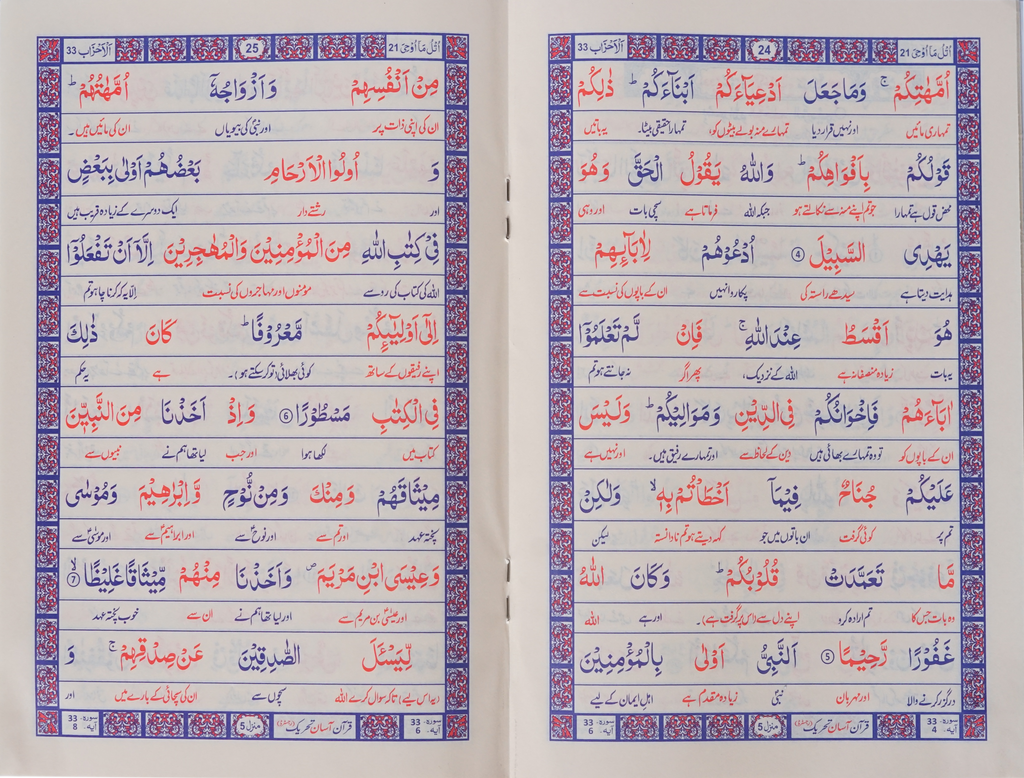 اُتْلُ مَا اُوْحِیَ 21 24 اَلْاَحْزَاب 33
اُمَّهٰتِكُمْ ۚ وَمَا جَعَلَ اَدْعِيَآءَكُمْ اَبْنَآءَكُمْ ؕ ذٰلِكُمْ
تمہاری مائیں اور نہیں قرار دیا تمہارے منہ بولے بیٹوں کو، تمہارا حقیقی بیٹا۔ یہ باتیں
قَوْلُكُمْ بِاَفْوَاهِكُمْ ؕ وَاللّٰهُ يَقُوْلُ الْحَقَّ وَهُوَ
محض قول ہے تمہارا جو تم اپنے منہ سے نکالتے ہو جبکہ اللہ فرماتا ہے سچی بات اور وہی
يَهْدِى السَّبِيْلَ ④ اُدْعُوْهُمْ لِاٰبَآئِهِمْ
ہدایت دیتا ہے سیدھے راستہ کی پکارو انہیں ان کے باپوں کی نسبت سے
هُوَ اَقْسَطُ عِنْدَ اللّٰهِ ۚ فَاِنْ لَّمْ تَعْلَمُوْۤا
یہ بات زیادہ منصفانہ ہے اللہ کے نزدیک، پھر اگر نہ جانتے ہو تم
اٰبَآءَهُمْ فَاِخْوَانُكُمْ فِى الدِّيْنِ وَمَوَالِيْكُمْ ؕ وَلَيْسَ
ان کے باپوں کو تو وہ تمہارے بھائی ہیں دین کے لحاظ سے اور تمہارے رفیق ہیں۔ اور نہیں ہے
عَلَيْكُمْ جُنَاحٌ فِيْمَاۤ اَخْطَاْتُمْ بِهٖ ۙ وَلٰكِنْ
تم پر کوئی گرفت ان باتوں میں جو کہہ دیتے ہو تم نادانستہ لیکن
مَّا تَعَمَّدَتْ قُلُوْبُكُمْ ؕ وَكَانَ اللّٰهُ
وہ بات جس کا تم ارادہ کرو اپنے دل سے (اس پر گرفت ہے)۔ اور ہے اللہ
غَفُوْرًا رَّحِيْمًا ⑤ اَلنَّبِىُّ اَوْلٰى بِالْمُؤْمِنِيْنَ
درگزر کرنے والا اور مہربان نبی زیادہ مقدم ہے اہل ایمان کے لیے
سورۃ 33 آیۃ 4 قرآن آسان تحریک منزل 5 سورۃ 33 آیۃ 6
اُتْلُ مَا اُوْحِیَ 21 25 اَلْاَحْزَاب 33
مِنْ اَنْفُسِهِمْ وَاَزْوَاجُهٗۤ اُمَّهٰتُهُمْ ؕ
ان کی اپنی ذات پر اور نبی کی بیویاں ان کی مائیں ہیں۔
وَ اُولُوا الْاَرْحَامِ بَعْضُهُمْ اَوْلٰى بِبَعْضٍ
اور رشتے دار ایک دوسرے کے زیادہ قریب ہیں
فِىْ كِتٰبِ اللّٰهِ مِنَ الْمُؤْمِنِيْنَ وَالْمُهٰجِرِيْنَ اِلَّاۤ اَنْ تَفْعَلُوْۤا
اللہ کی کتاب کی رو سے مؤمنوں اور مہاجروں کی نسبت الّا یہ کہ کرنا چاہو تم
اِلٰٓى اَوْلِيٰٓئِكُمْ مَّعْرُوْفًا ؕ كَانَ ذٰلِكَ
اپنے رفیقوں کے ساتھ کوئی بھلائی (تو کر سکتے ہو)۔ ہے یہ حکم
فِى الْكِتٰبِ مَسْطُوْرًا ⑥ وَاِذْ اَخَذْنَا مِنَ النَّبِيّٖنَ
کتاب میں لکھا ہوا اور جب لیا تھا ہم نے نبیوں سے
مِيْثَاقَهُمْ وَمِنْكَ وَمِنْ نُّوْحٍ وَّاِبْرٰهِيْمَ وَمُوْسٰى
پختہ عہد اور تم سے اور نوح سے اور ابراہیم سے اور موسیٰ سے
وَعِيْسَى ابْنِ مَرْيَمَ ۖ وَاَخَذْنَا مِنْهُمْ مِّيْثَاقًا غَلِيْظًا ۙ⑦
اور عیسیٰ بن مریم سے اور لیا تھا ہم نے ان سے خوب پختہ عہد
لِّيَسْئَلَ الصّٰدِقِيْنَ عَنْ صِدْقِهِمْ ۚ وَ
(یہ اس لیے) تاکہ سوال کرے اللہ سچوں سے ان کی سچائی کے بارے میں اور
سورۃ 33 آیۃ 6 قرآن آسان تحریک منزل 5 سورۃ 33 آیۃ 8